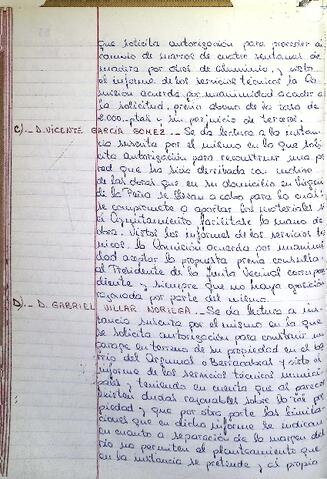 que solicita autorización para proceder al
cambio de marcos de cuatro ventanas de
madera por otros de aluminio, y visto
el informe de los servicios técnicos la Co
misión acuerda por unanimidad acceder a
la solicitud, previo abono de la tasa de
2.000.- ptas y sin perjuicio de terceros.
C).- D. VICENTE GARCÍA GOMEZ.- Se da lectura a la instan
cia suscrita por el mismo en la que soli
cita autorización para reconstruir una pa
red que ha sido derribada con motivo
de las obras que en su domicilio en Virgen
de la Peña se llevan a cabo para lo cual
se compromete a aportar los materiales si
el Ayuntamiento facilitase la mano de
obra. Vistos los informes de los servicios téc
nicos, la Comisión acuerda por unanimi
dad aceptar la propuesta previa consulta
al Presidente de la Junta Vecinal correspon
diente y siempre que no haya oposición
razonada por parte del mismo.
D).- D. GABRIEL VILLAR NORIEGA.- Se da lectura a ins
tancia suscrita por el mismo en la que
se solicita autorización para construir un
garage en terreno de su propiedad en el ba
rrio del
informe de los servicios técnicos munici
pales y teniendo en cuenta que al parecer
existen dudas razonables sobre la tal pro
piedad y que por otra parte las limita
ciones que en dicho informe se indican
en cuanto a separación de la margen del
río no permiten el planteamiento que
en la instancia se pretende y al propio